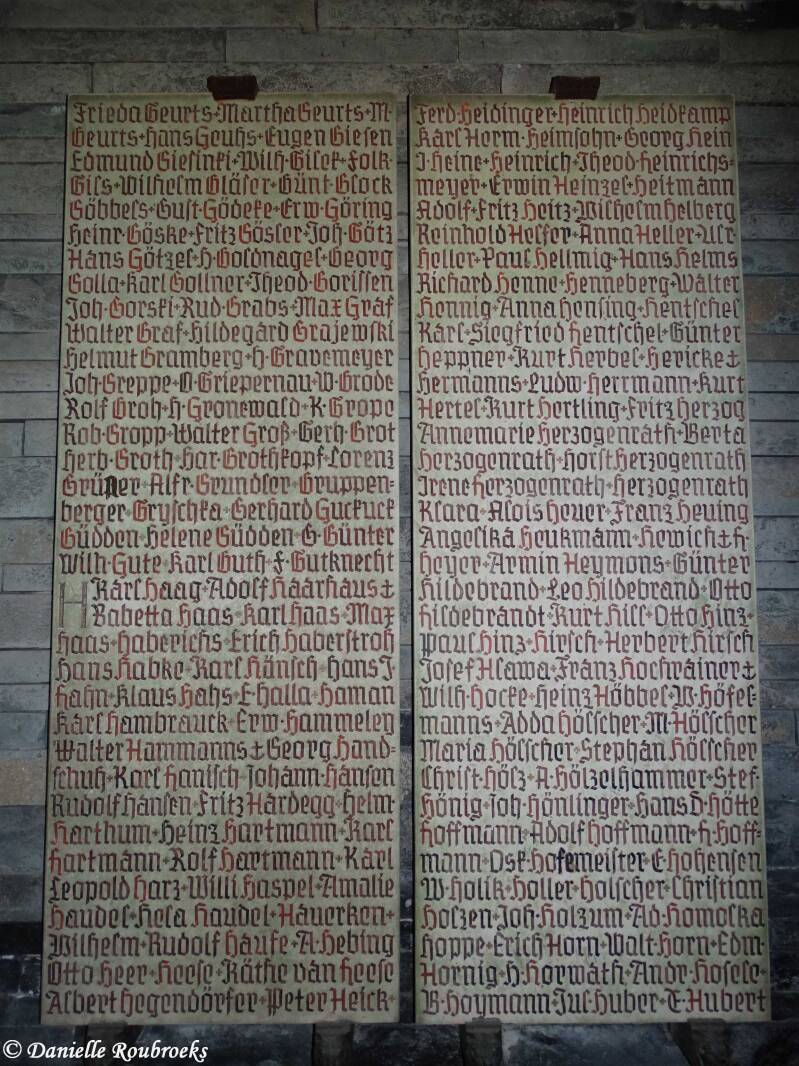 Frieda Geurts · Martha Geurts · M.
Geurts · Hans Geuhs · Eugen Giesen
Edmund Giesinki · Wilh. Gilek · Folk.
Gils · Wilhelm Gläser · Günt. Glock
Göbbels · Gust. Gödeke · Erw. Göring
Heinr. Göske · Fritz Gösler · Joh. Götz
Hans Götzel · H. Goldnagel · Georg
Golla · Karl Gollner · Theod. Gorissen
Joh. Gorski · Rud. Grabs · Max Graf
Walter Graf · Hildegard Grajewski
Helmut Gramberg · H. Gravemeyer
Joh. Greppe · O. Griepernau · W. Grode
Rolf Groh · H. Gronewald · K. Grope
Rob. Gropp · Walter Groß · Gerh. Grot
Herb. Groth · Har. Grothkopf · Lorenz
Grüner · Alfr. Grundler · Gruppen-
berger · Gryschka · Gerhard Guckuck
Güdden · Helene Güdden · G. Günter
Wilh. Gute · Karl Guth · F. Gutknecht
H Karl Haag · Adolf Haarhaus ‡
Babetta Haas · Karl Haas · Max
Haas · Haberichs · Erich Haberstroh
Hans Habke · Karl Hänsch · Hans J.
Hahn · Klaus Hahs · E. Halla · Haman
Karl Hambrauck · Erw. Hammeley
Walter Hammanns ‡ Georg Hand-
schuh · Karl Hanisch · Johann Hansen
Rudolf Hansen · Fritz Hardegg · Helm.
Harthum · Heinz Hartmann · Karl
Hartmann · Rolf Hartmann · Karl
Leopold Harz · Willi Haspel · Amalie
Haudel · Hela Haudel · Hauerken ·
Wilhelm · Rudolf Haufe · A. Hebing
Otto Heer · Heese · Käthe van Heese
Albert Hegendörfer · Peter Heick ·
Ferd. Heidinger · Heinrich Heidkamp
Karl Herm. Heimsohn · Georg Hein
J. Heine · Heinrich · Theod. Heinrichs-
meyer · Erwin Heinzel · Heitmann
Adolf · Fritz Heitz · Wilhelm Helberg
Reinhold Helfer · Anna Heller · Ulr.
Heller · Paul Hellmig · Hans Helms
Richard Henne · Henneberg · Walter
Hennig · Anna Hensing · Hentschel
Karl · Siegfried Hentschel · Günter
Heppner · Kurt Herbel · Hericke ‡
Hermanns · Ludw. Herrmann · Kurt
Hertel · Kurt Hertling · Fritz Herzog
Annemarie Herzogenrath · Berta
Herzogenrath · Horst Herzogenrath
Irene Herzogenrath · Herzogenrath
Klara · Alois Heuer · Franz Heuing
Angelika Heukmann · Hewich ‡ H.
Heyer · Armin Heymons · Günter
Hildebrand · Leo Hildebrand · Otto
Hildebrandt · Kurt Hill · Otto Hinz ·
Paul Hinz · Hirsch · Herbert Hirsch
Josef Hlawa · Franz Hochrainer ‡
Wilh. Hocke · Heinz Höbbel · W. Höfel-
manns · Adda Hölscher · M. Hölscher
Maria Hölscher · Stephan Hölscher
Christ. Hölz · A. Hölzelhammer · Stef.
Hönig · Joh. Hönlinger · Hans D. Hötte
Hoffmann · Adolf Hoffmann · H. Hoff-
mann · Osk. Hofemeister · E. Hohensen
W. Holik · Holler · Holscher · Christian
Holzen · Joh. Holzum · Ad. Homolka
Hoppe · Erich Horn · Walt. Horn · Edm.
Hornig · H. Horwath · Andr. Hosele ·
B. Hoymann · Jul. Huber · T. Hubert
© Danielle Roubroeks